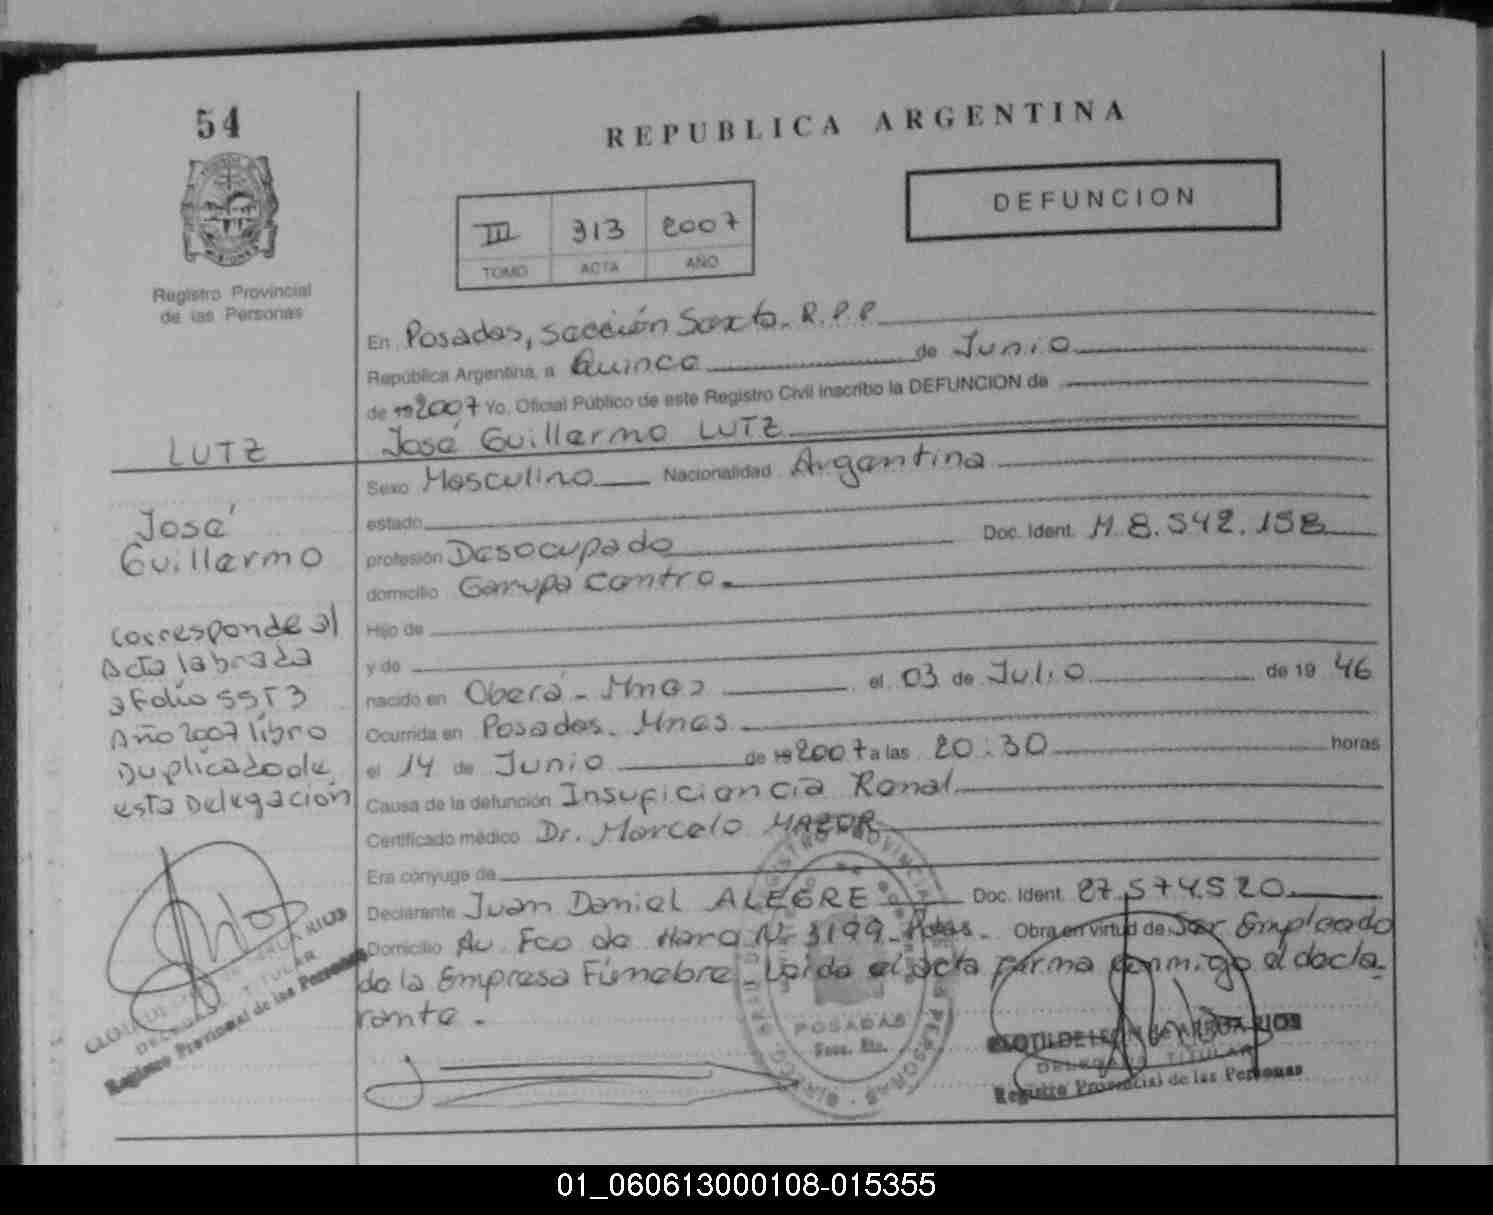 54
REPUBLICA ARGENTINA
DEFUNCION
III 313 2007
TOMO ACTA AÑO
Registro Provincial
de las Personas
En Posadas, sección Sexta. R.P.P.
República Argentina, a Quince de Junio
de 19 2007 Yo, Oficial Público de este Registro Civil inscribo la DEFUNCION de
José Guillermo LUTZ
LUTZ
Sexo Masculino Nacionalidad Argentina
estado
José
Guillermo
profesión Desocupado Doc. Ident. M.8.542.158
domicilio Garupa Centro.
Hijo de
y de
corresponde al
Acta labrada
a Folio 55T3
Año 2007 libro
Duplicado de
esta Delegación
nacido en Oberá - Mnes el 03 de Julio de 19 46
Ocurrida en Posadas. Mnes
el 14 de Junio de 19 2007 a las 20:30 horas
Causa de la defunción Insuficiencia Renal
Certificado médico Dr. Marcelo MAZUR
Era cónyuge de
Declarante Juan Daniel ALEGRE Doc. Ident. 27.574.520
Domicilio Av. Fco de Haro Nº 3199 - Pdas. Obra en virtud de Ser Empleado
de la Empresa Fúnebre. Leída el acta firma conmigo el decla-
rante.
POSADAS
Secc. 6ta.
DELEGADA TITULAR
Registro Provincial de las Personas
DELEGADA TITULAR
Registro Provincial de las Personas
01_060613000108-015355